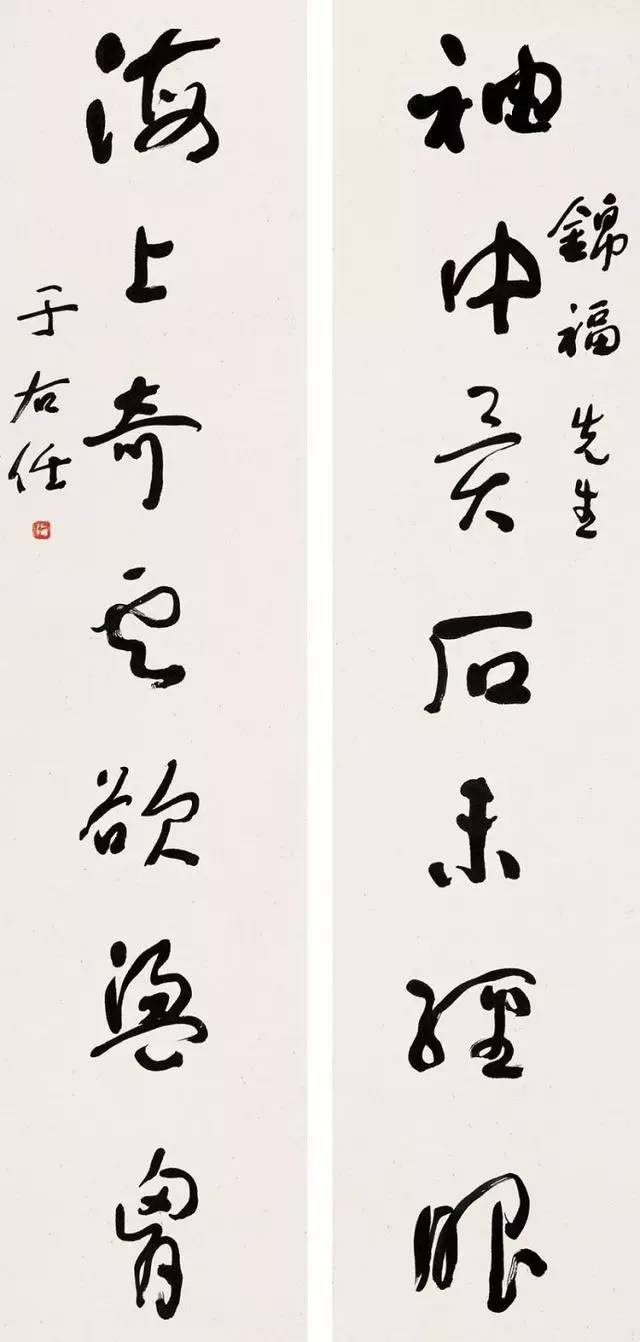 袖中異石未經眼
錦福先生
海上奇雲欲盪胷
于右任